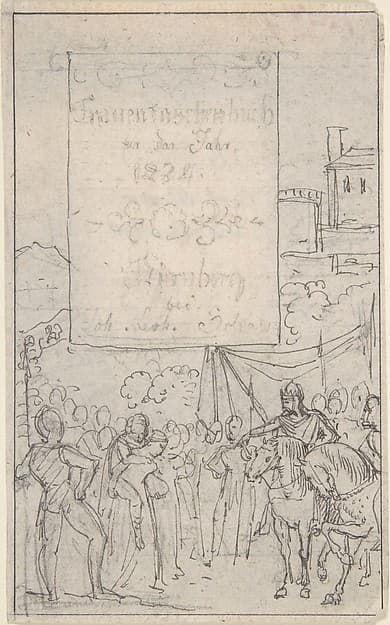 Frauentaschenbuch
für das Jahr
1824.
Nürnberg
bei
Joh. Leoh. Schrag